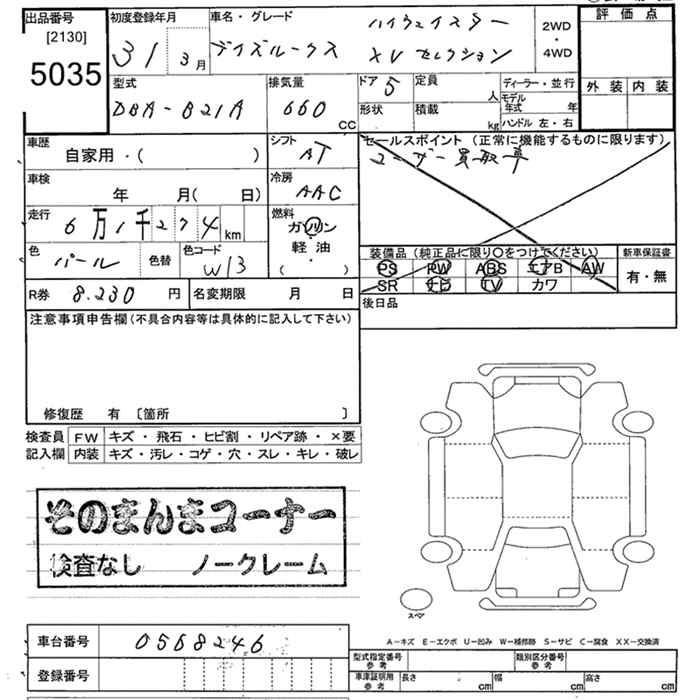 出品番号 初度登録年月 車名・グレード ハイウェイスター 2WD ・ 4WD 評価点
[2130] 31 3月 デイズルークス XV セレクション
5035 型式 排気量 ドア 5 定員 人 ディーラー・並行 外装 内装
DBA-B21A 660 CC 形状 積載 kg モデル年式 年 ハンドル 左・右
車歴 自家用・( ) シフト AT セールスポイント (正常に機能するものに限ります)
ユーザー買取車
車検 年 月( 日) 冷房 AAC
走行 6万1千274km 燃料 ガソリン・軽油・( )
色 パール 色替 色コード W13 装備品 (純正品に限り○をつけてください) 新車保証書
PS PW ABS エアB AW 有・無
SR ナビ TV カワ
R券 8.230 円 名変期限 月 日 後日品
注意事項申告欄(不具合内容等は具体的に記入して下さい)
修復歴 有 〔箇所 〕
検査員 FW キズ・飛石・ヒビ割・リペア跡・×要
記入欄 内装 キズ・汚レ・コゲ・穴・スレ・キレ・破レ
そのまんまコーナー
検査なし ノークレーム
スペア
A−キズ E−エクボ U−凹み W−補修跡 S−サビ C−腐食 XX−交換済
車台番号 0568246 型式指定番号 参考 類別区分番号 参考
登録番号 車庫証明用 参考 長さ cm 幅 cm 高さ cm